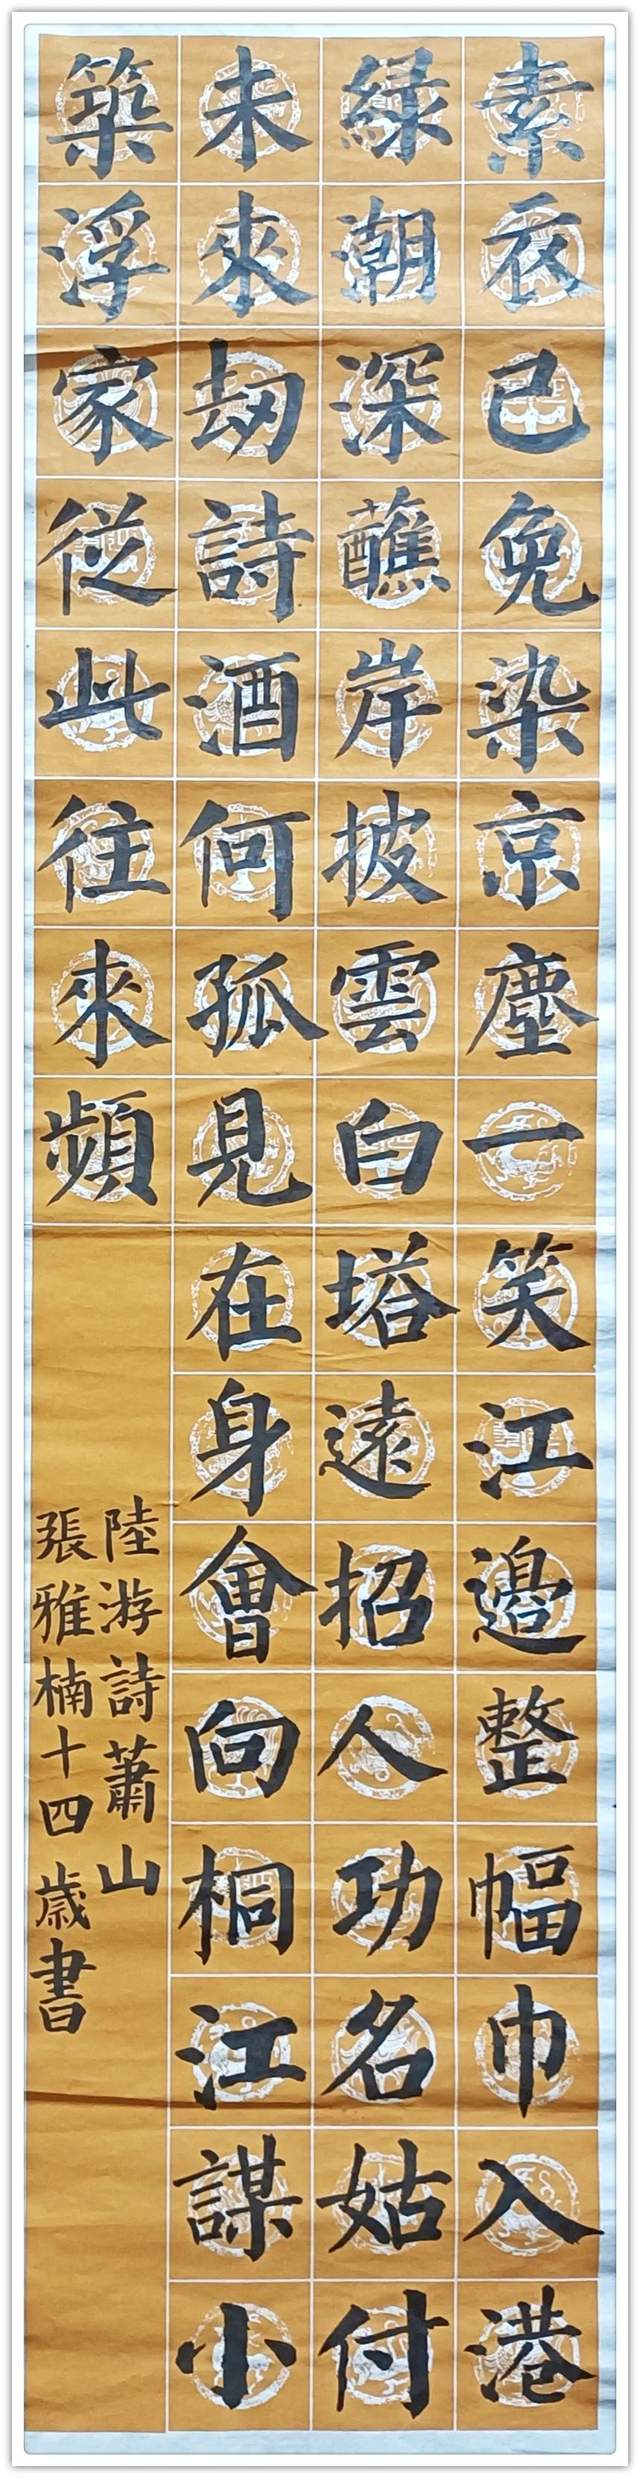 素衣已免染京塵一笑江邊整幅巾入港
緑潮深蘸岸披雲白塔遠招人功名姑付
未來刼詩酒何孤見在身會向桐江謀小
築浮家從此往來頻
陸游詩蕭山
張雅楠十四歲書